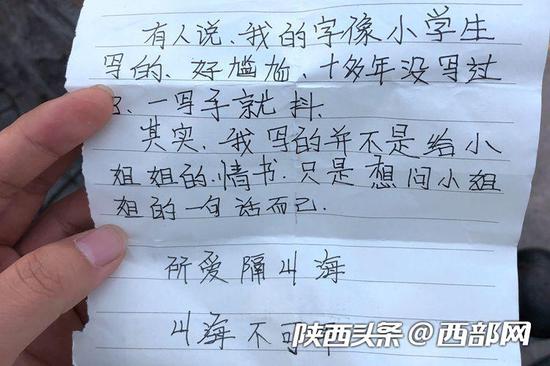 有人说、我的字像小学生
写的、好尴尬、十多年没写过
、一写手就抖、
其实、我写的并不是给小
姐姐的情书、只是想问小姐
姐的一句话而已.
所爱隔山海
山海不可
陕西头条@西部网